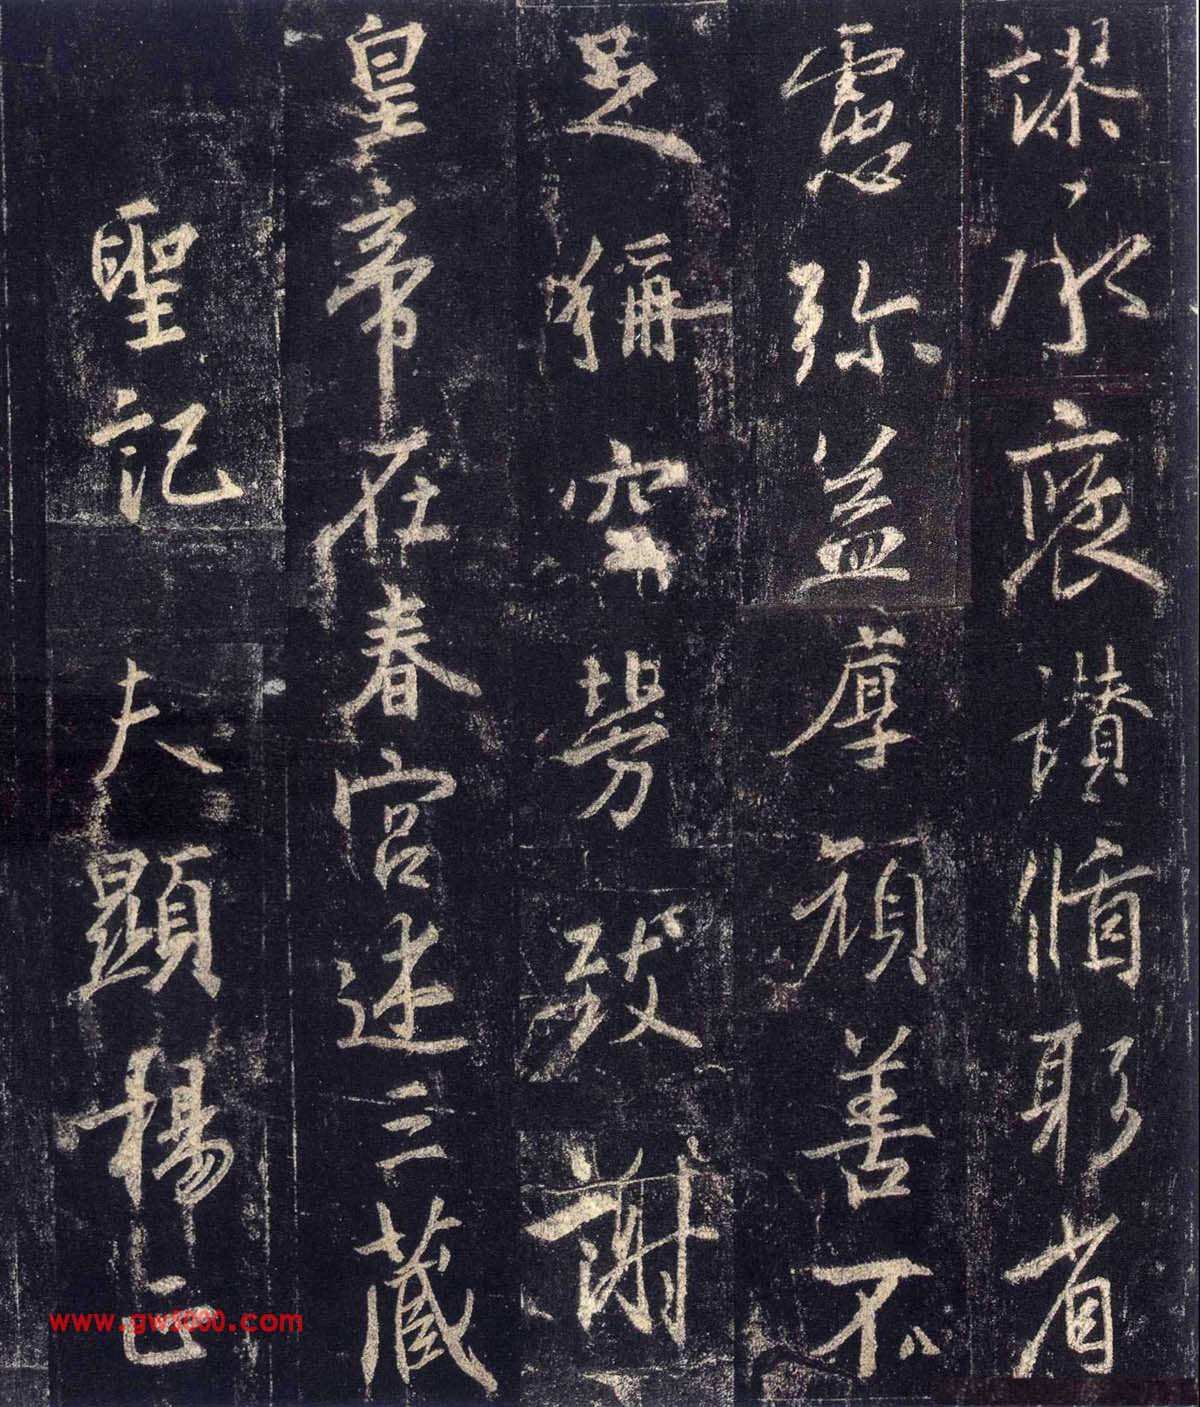 謬承褒讃循躬省
慮弥益厚顔善不
足稱空勞致謝
皇帝在春宮述三藏
聖記　夫顯揚正
www.gw5000.com